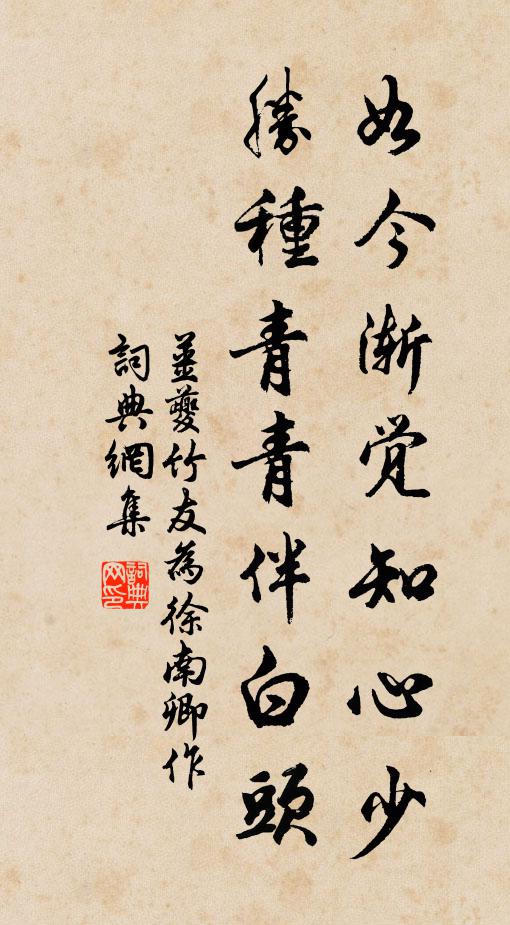 如今渐觉知心少
勝種青青伴白頭
薑夔竹友為徐南卿作
詞典網集
詞典
网印